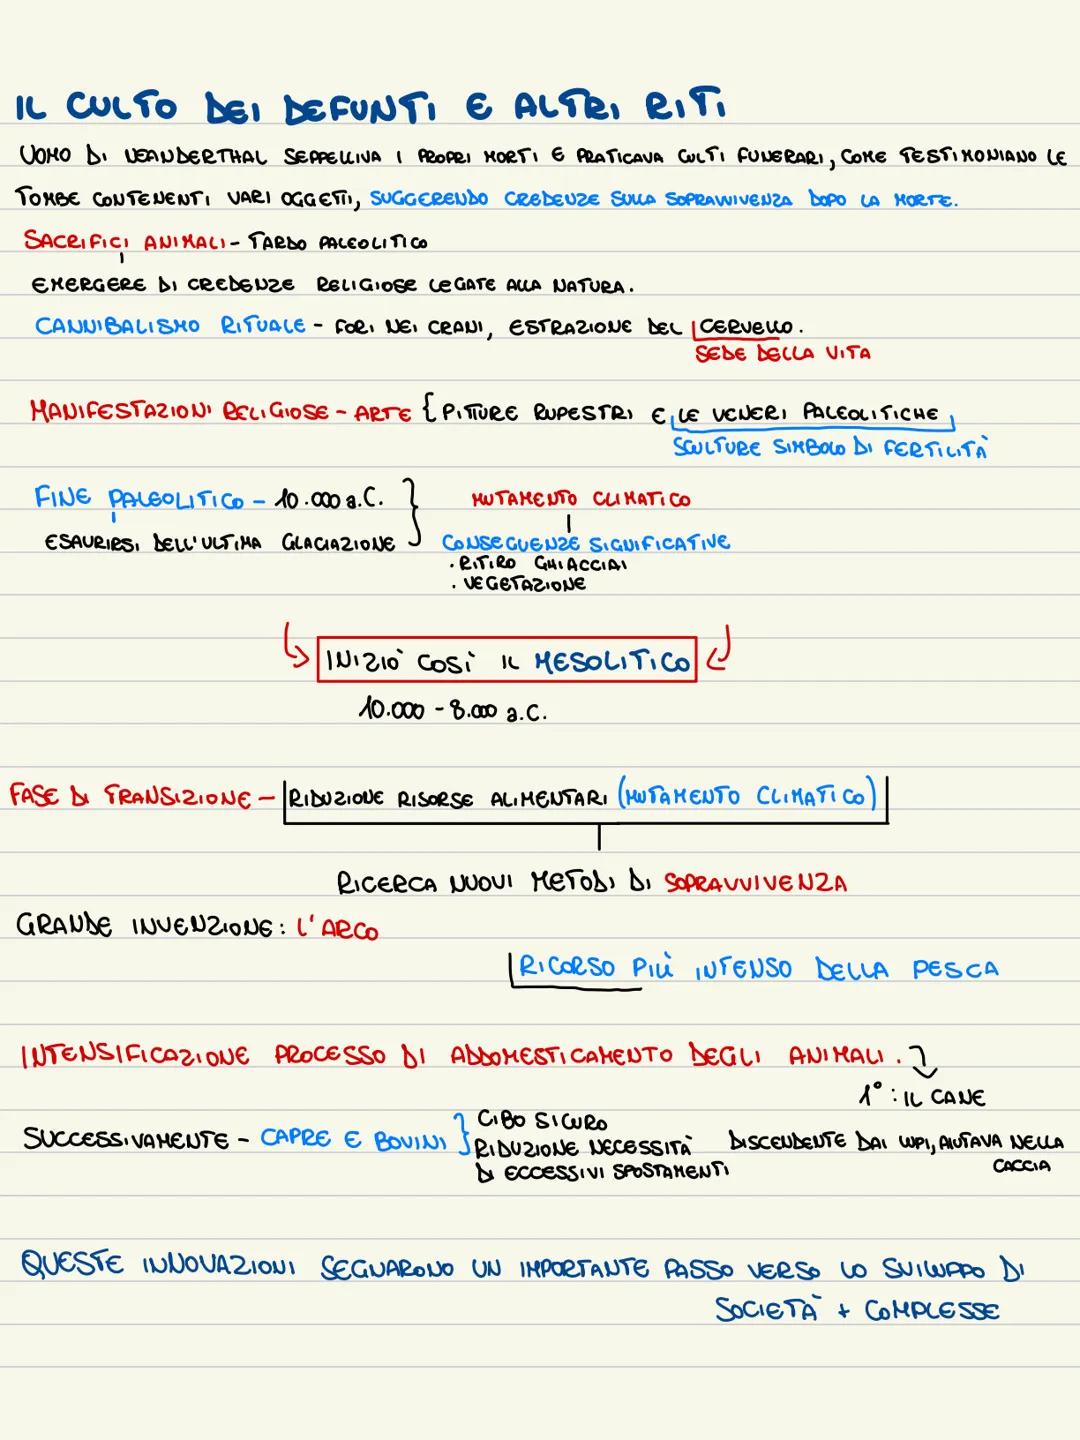 IL CULTO DEI DEFUNTI E ALTRI RITI
UOMO DI NEANDERTHAL SEPPELLIVA I PROPRI MORTI E PRATICAVA CULTI FUNERARI, COME TESTIMONIANO LE
TOMBE CONTENENTI VARI OGGETTI, SUGGERENDO CREDENZE SULLA SOPRAVVIVENZA DOPO LA MORTE.
SACRIFICI ANIMALI - TARDO PALEOLITICO
EMERGERE DI CREDENZE RELIGIOSE LEGATE ALLA NATURA.
CANNIBALISMO RITUALE - FORI NEI CRANI, ESTRAZIONE DEL CERVELLO.
SEDE DELLA VITA
MANIFESTAZIONI RELIGIOSE - ARTE { PITTURE RUPESTRI E LE VENERI PALEOLITICHE
SCULTURE SIMBOLO DI FERTILITÀ
FINE PALEOLITICO - 10.000 a.C. } MUTAMENTO CLIMATICO
ESAURIRSI DELL'ULTIMA GLACIAZIONE CONSEGUENZE SIGNIFICATIVE
· RITIRO GHIACCIAI
· VEGETAZIONE
INIZIÒ COSÌ IL MESOLITICO
10.000 - 8.000 a.C.
FASE DI TRANSIZIONE - RIDUZIONE RISORSE ALIMENTARI (MUTAMENTO CLIMATICO)
RICERCA NUOVI METODI DI SOPRAVVIVENZA
GRANDE INVENZIONE: L'ARCO
RICORSO PIÙ INTENSO DELLA PESCA
INTENSIFICAZIONE PROCESSO DI ADDOMESTICAMENTO DEGLI ANIMALI.
1° : IL CANE
SUCCESSIVAMENTE - CAPRE E BOVINI } CIBO SICURO
RIDUZIONE NECESSITÀ
DI ECCESSIVI SPOSTAMENTI
DISCENDENTE DAI LUPI, AIUTAVA NELLA
CACCIA
QUESTE INNOVAZIONI SEGNARONO UN IMPORTANTE PASSO VERSO LO SVILUPPO DI
SOCIETÀ + COMPLESSE